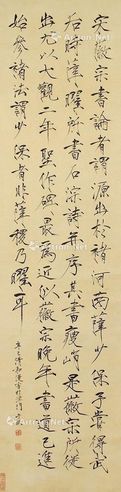 宋徽宗書論者謂源出於褚河南薛少保予嘗得武
后時薛曜所書石淙詩并序其書瘦峭是徽宗所從
出尤以大觀二年聖作碑最為近似徽宗晚年書道已進
始參諸法謂少保者非薛稷乃曜耳